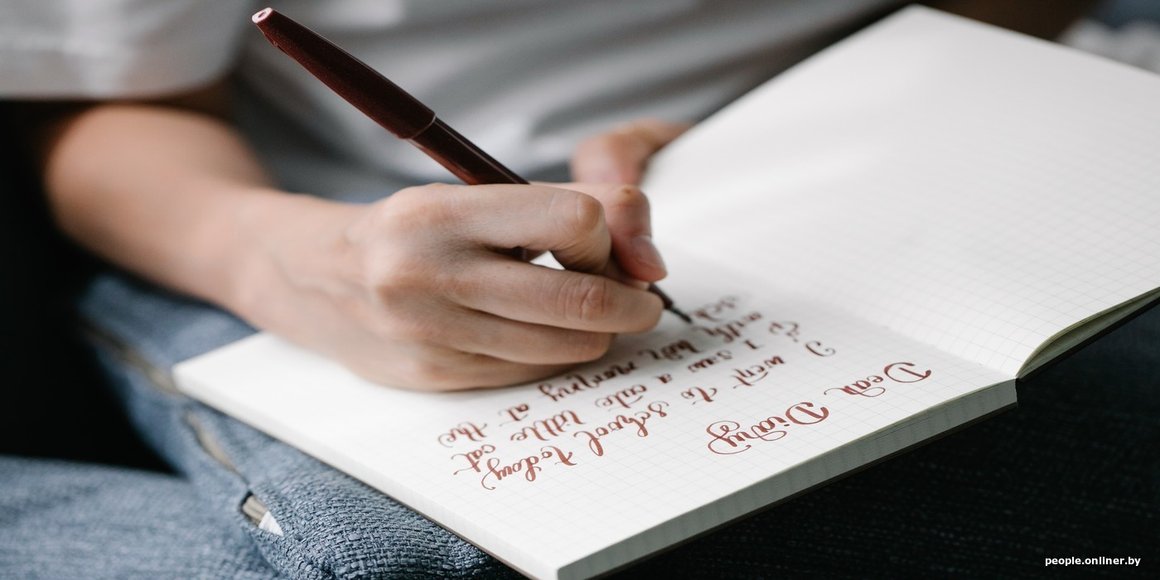 Dear Diary
I went to school today
I saw a cute little cat
with mommy at the
people.onliner.by